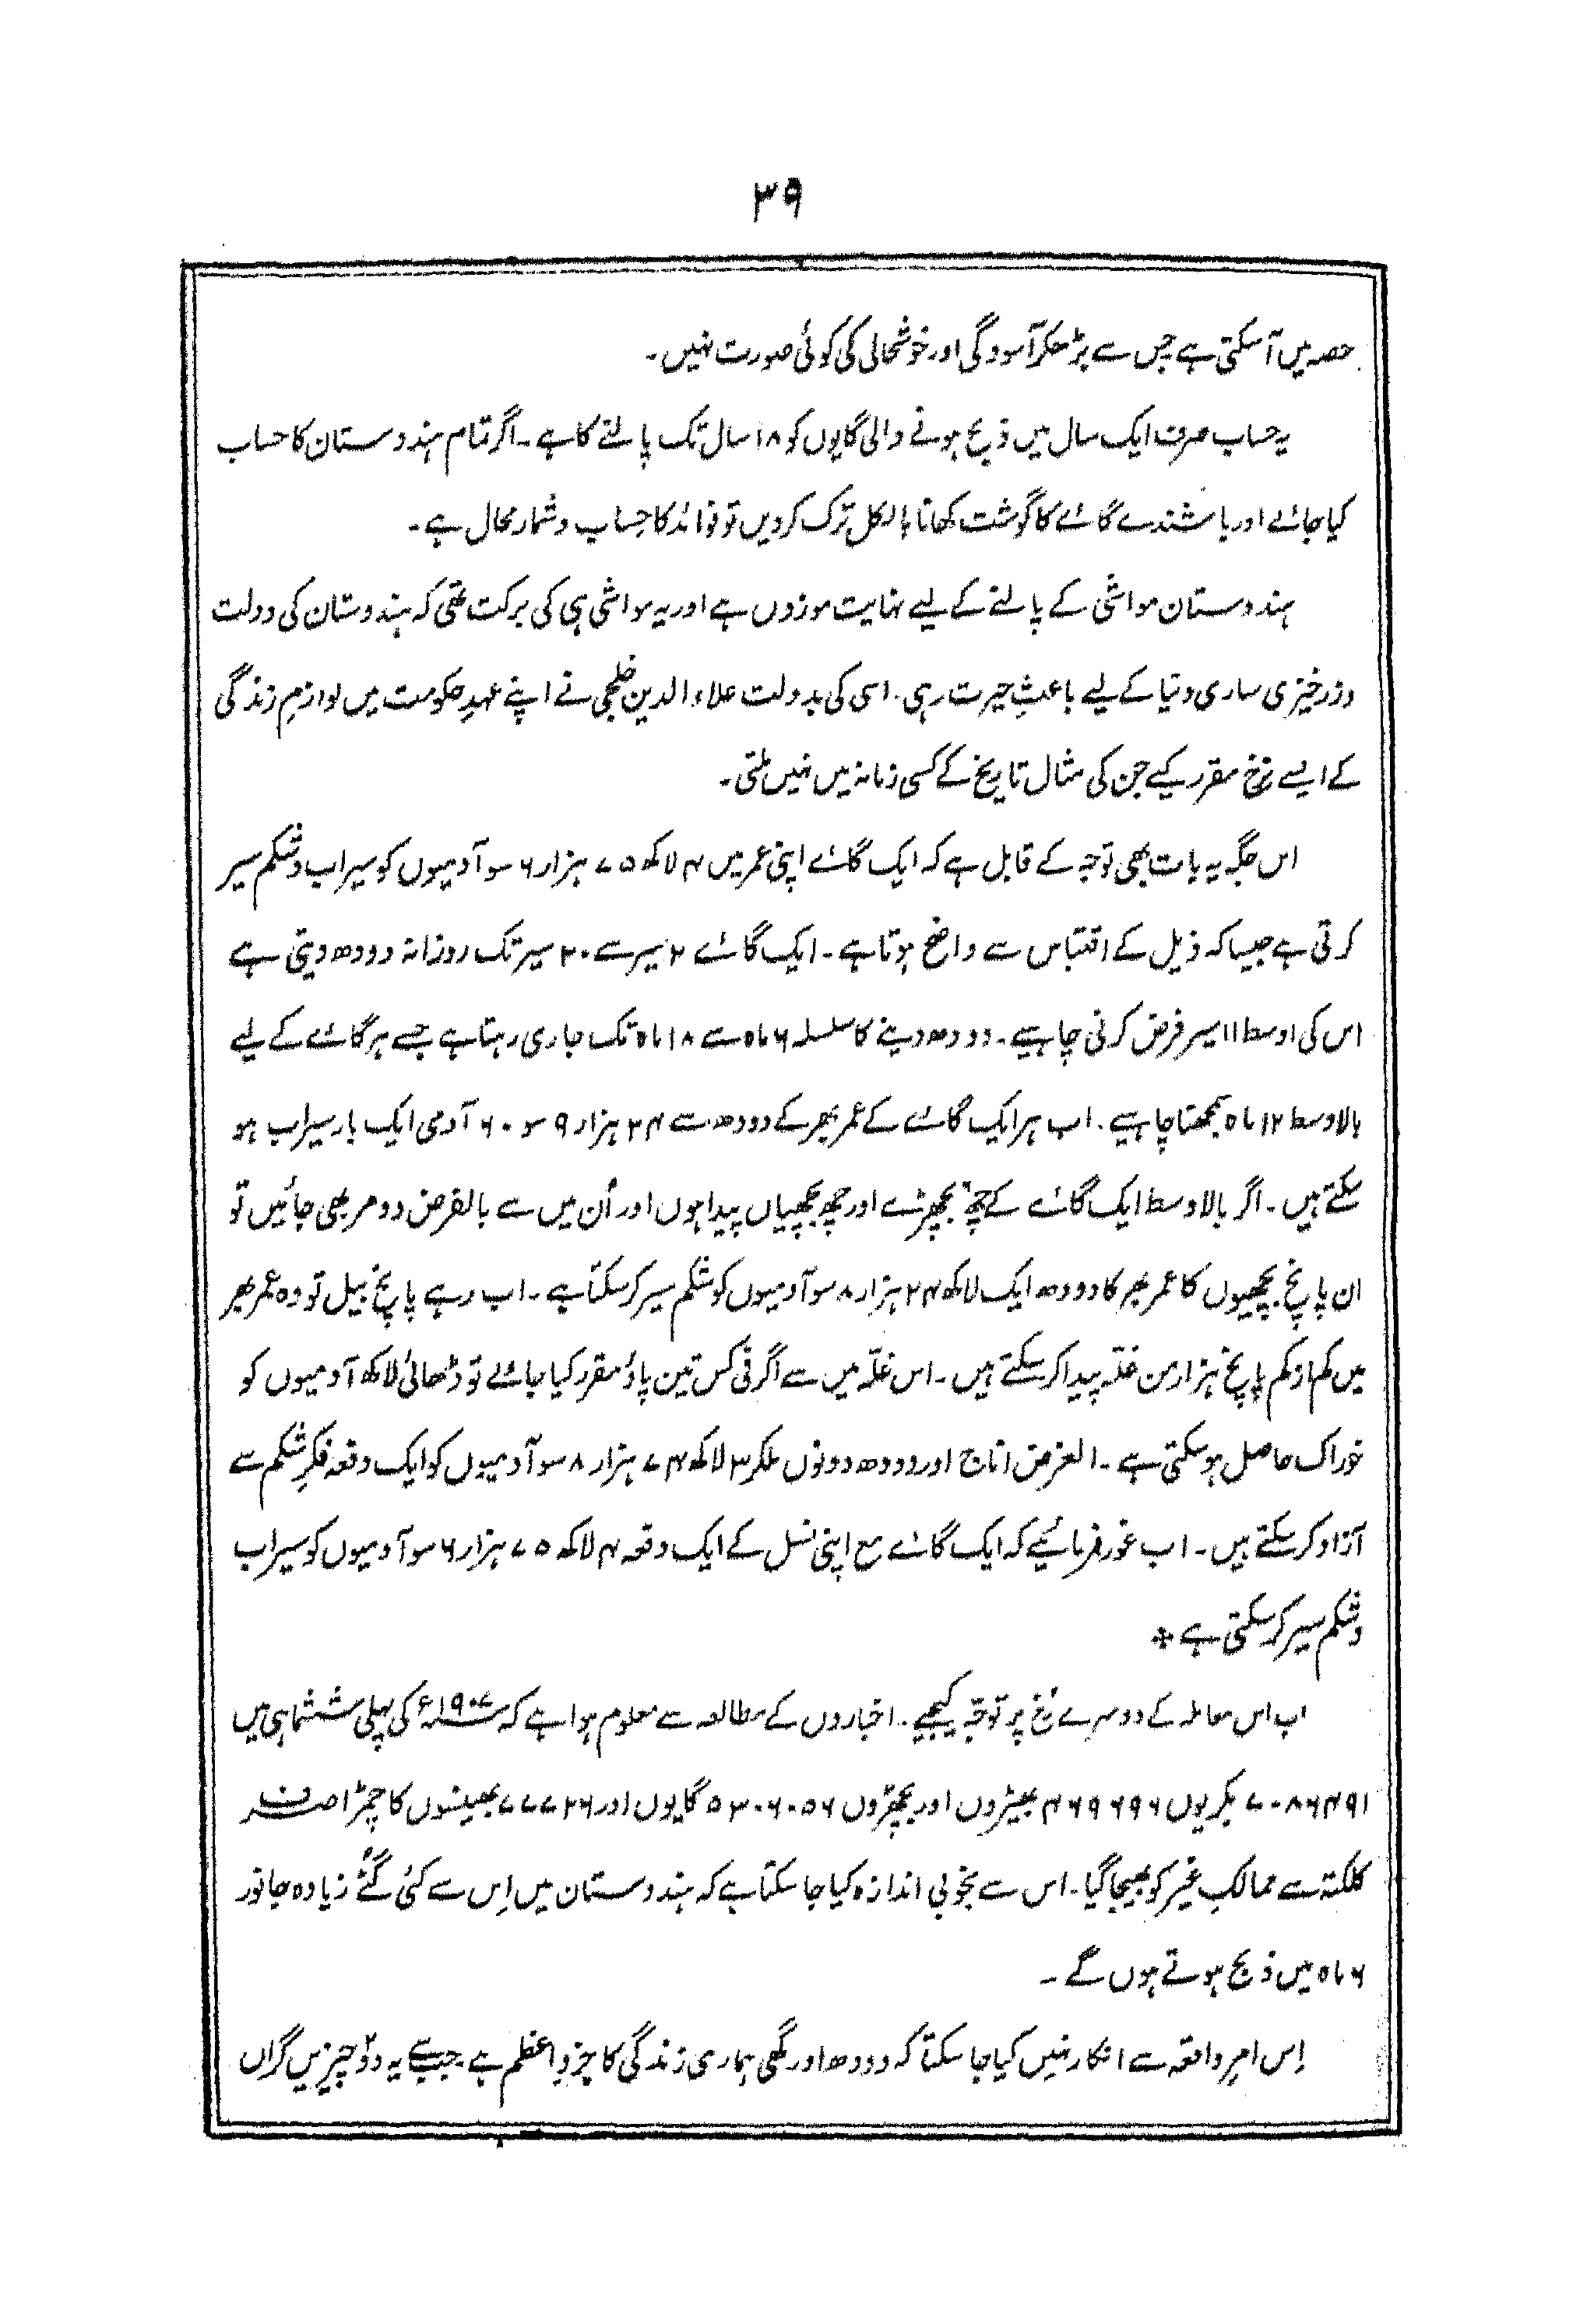 ۳۹
حصہ میں آسکتی ہے جس سے بڑھکر آسودگی اور خوشحالی کی کوئی صورت نہیں۔
یہ حساب صرف ایک سال میں ذبح ہونے والی گایوں کو ۱۸ سال تک پالنے کا ہے۔ اگر تمام ہندوستان کا حساب
کیا جائے اور باشندے گائے کا گوشت کھانا بالکل ترک کردیں تو فوائد کا حساب و شمار محال ہے۔
ہندوستان مواشی کے پالنے کے لیے نہایت موزوں ہے اور یہ مواشی ہی کی برکت تھی کہ ہندوستان کی دولت
و زرخیزی ساری دنیا کے لیے باعثِ حیرت رہی۔ اسی کی بدولت علاء الدین خلجی نے اپنے عہدِ حکومت میں لوازمِ زندگی
کے ایسے نرخ مقرر کیے جن کی مثال تاریخ کے کسی زمانہ میں نہیں ملتی۔
اس جگہ یہ بات بھی توجہ کے قابل ہے کہ ایک گائے اپنی عمر میں ۴ لاکھ ۷۵ ہزار ۶ سو آدمیوں کو سیراب و شکم سیر
کرتی ہے جیسا کہ ذیل کے اقتباس سے واضح ہوتا ہے۔ ایک گائے ۲ سیر سے ۲۰ سیر تک روزانہ دودھ دیتی ہے
اس کی اوسط ۱۱ سیر فرض کرنی چاہیے۔ دودھ دینے کا سلسلہ ۶ ماہ سے ۱۸ ماہ تک جاری رہتا ہے جسے ہر گائے کے لیے
بالاوسط ۱۲ ماہ سمجھنا چاہیے۔ اب ہر ایک گائے کے عمر بھر کے دودھ سے ۲۴ ہزار ۹ سو ۶۰ آدمی ایک بار سیراب ہو
سکتے ہیں۔ اگر بالاوسط ایک گائے کے چھ بچھڑے اور چھ بچھیاں پیدا ہوں اور اُن میں سے بالفرض دو مر بھی جائیں تو
ان پانچ بچھیوں کا عمر بھر کا دودھ ایک لاکھ ۲۴ ہزار ۸ سو آدمیوں کو شکم سیر کرسکتا ہے۔ اب رہے پانچ بیل تو وہ عمر بھر
میں کم از کم پانچ ہزار من غلّہ پیدا کرسکتے ہیں۔ اس غلّہ میں سے اگر فی کس تین پاؤ مقرر کیا جائے تو ڈھائی لاکھ آدمیوں کو
خوراک حاصل ہوسکتی ہے۔ الغرض اناج اور دودھ دونوں ملکر ۳ لاکھ ۷۴ ہزار ۸ سو آدمیوں کو ایک دفعہ فکرِ شکم سے
آزاد کرسکتے ہیں۔ اب غور فرمائیے کہ ایک گائے مع اپنی نسل کے ایک دفعہ ۴ لاکھ ۷۵ ہزار ۶ سو آدمیوں کو سیراب
و شکم سیر کرسکتی ہے *
اب اس معاملہ کے دوسرے رُخ پر توجّہ کیجیے۔ اخباروں کے مطالعہ سے معلوم ہوا ہے کہ ۱۹۰۷ء کی پہلی ششماہی میں
۷۰۸۶۴۹۱ بکریوں ۴۶۹۶۹۶ بھیڑوں اور بچھڑوں ۵۳۰۶۰۵۶ گایوں اور ۷۷۷۲۶ بھینسوں کا چمڑا صرف
کلکتہ سے ممالکِ غیر کو بھیجا گیا۔ اس سے بخوبی اندازہ کیا جا سکتا ہے کہ ہندوستان میں اِس سے کئی گُنے زیادہ جانور
۶ ماہ میں ذبح ہوتے ہوں گے۔
اِس امرِ واقعہ سے انکار نہیں کیا جا سکتا کہ دودھ اور گھی ہماری زندگی کا جزوِ اعظم ہے۔ جب سے یہ دو چیزیں گراں